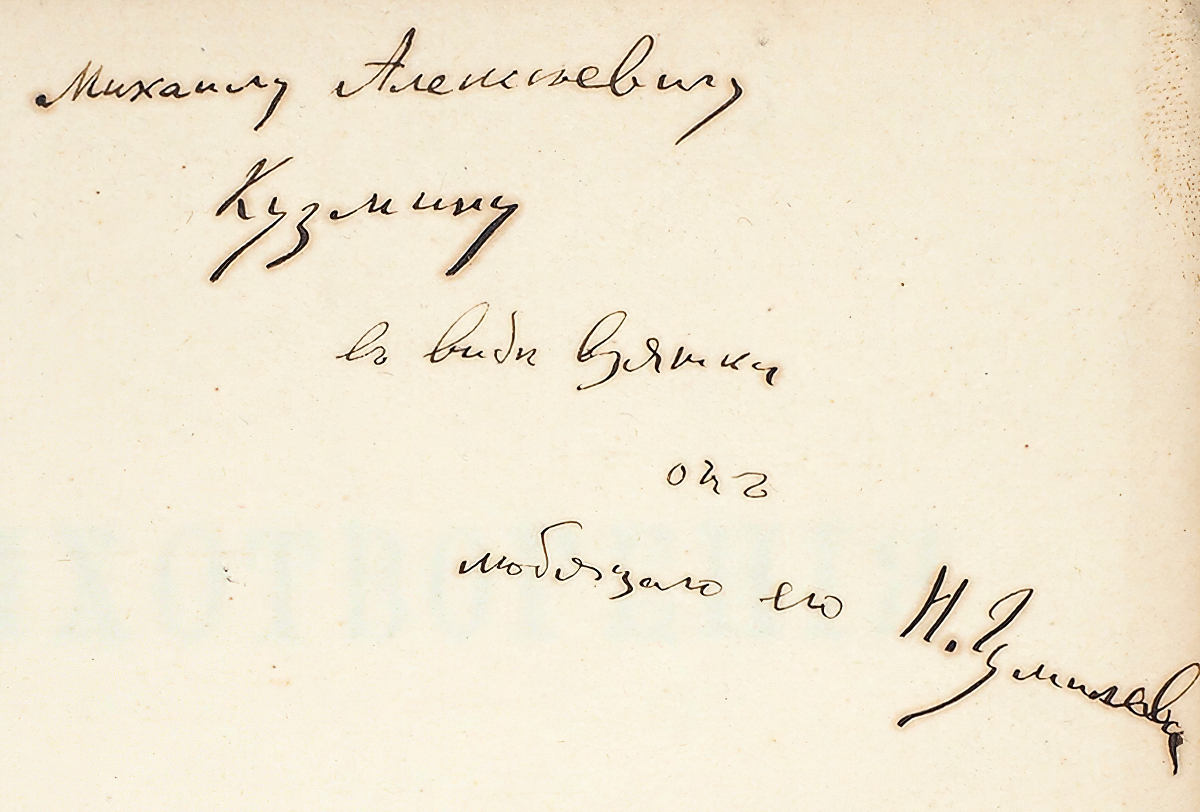 Михаилу Алексѣевичу
Кузмину
въ видѣ взятки
отъ
любящаго его Н. Гумилевъ